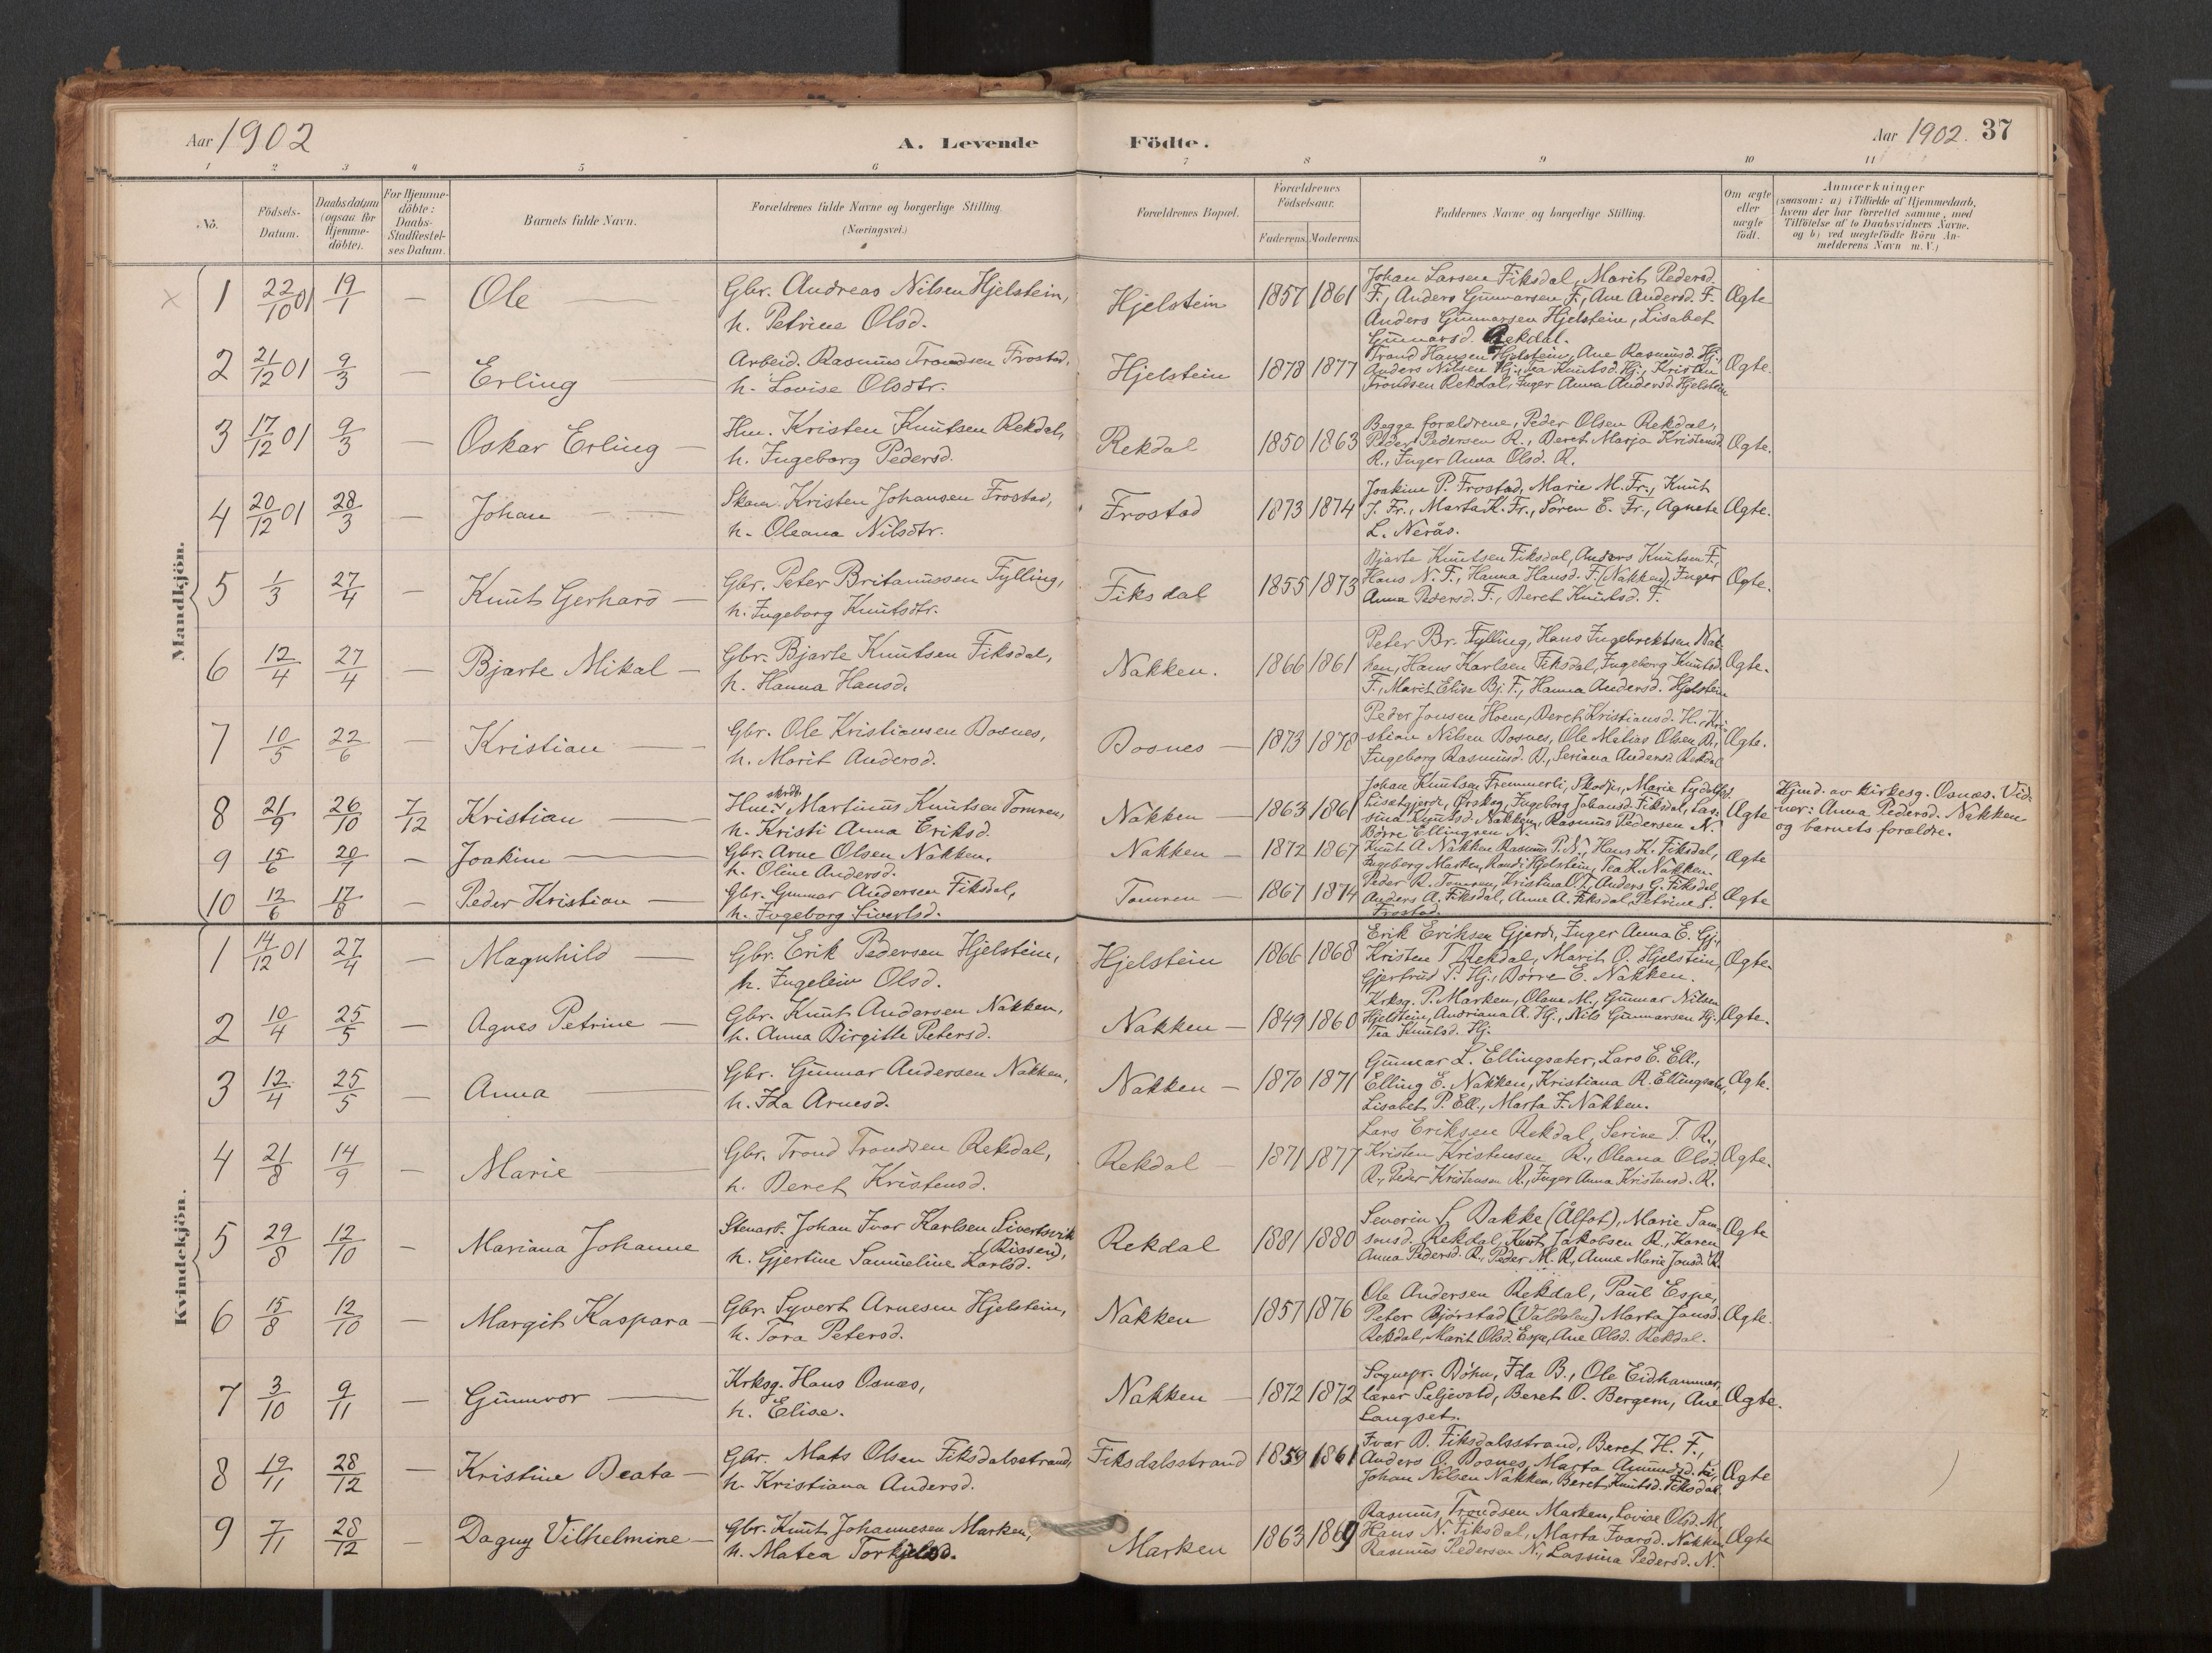 Aar 1902
A. Levende
Födte.
Aar 1902. 37
1 2 3 4 5 6 7 8 9 10 11
No.
Födsels-Datum.
Daabsdatum (ogsaa for Hjemmedöbte).
For Hjemmedöbte: Daabs-Stadfæstelses Datum.
Barnets fulde Navn.
Forældrenes fulde Navne og borgerlige Stilling. (Næringsvei.)
Forældrenes Bopæl.
Forældrenes Födselsaar.
Faderens. Moderens.
Faddernes Navne og borgerlige Stilling.
Om ægte eller uægte födt.
Anmærkninger
(saasom: a) i Tilfælde af Hjemmedaab, hvem der har forrettet samme, med Tilföielse af to Daabsvidners Navne. og b) ved uægtefödte Börn Anmelderens Navn m. V.)
Mandkjön.
× 1 22/10 01 19/1 — Ole — Gbr. Andreas Nilsen Hjelstein,
h. Petrine Olsd.
Hjelstein 1857 1861 Johan Larsen Fiksdal, Marit Pedersd.
F., Anders Gunnarsen F., Ane Andersd. F.
Anders Gunnarsen Hjelstein, Lisabet
Gunnarsd. Rekdal.
Ægte
2 21/12 01 9/3 — Erling — Arbeid. Rasmus Trondsen Frostad,
h. Lovise Olsdtr.
Hjelstein 1878 1877 Trond Hansen Hjelstein, Ane Rasmusd. Hj.,
Anders Nilsen Hj., Tea Knutsd. Hj., Kristen
Trondsen Rekdal, Inger Anna Andersd. Hjelstein
Ægte.
3 17/12 01 9/3 — Oskar Erling — Hm. Kristen Knutsen Rekdal,
h. Ingeborg Pedersd.
Rekdal 1850 1863 Begge forældrene, Peder Olsen Rekdal,
Peder Pedersen R., Beret Marja Kristensd.
R., Inger Anna Olsd. R.
Ægte.
4 20/12 01 28/3 — Johan — Skom. Kristen Johansen Frostad,
h. Oleana Nilsdtr.
Frostad 1873 1874 Joakim P. Frostad, Marie M. Fr., Knut
J. Fr., Marta K. Fr., Sören E. Fr., Agnete
L. Nerås.
Ægte.
5 1/3 27/4 — Knut Gerhard — Gbr. Peter Britanussen Fylling,
h. Ingeborg Knutsdtr.
Fiksdal 1855 1873 Bjarte Knutsen Fiksdal, Anders Knutsen F.,
Hans N. F., Hanna Hansd. F. (Nakken), Inger
Anna Pedersd. F., Beret Knutsd. F.
Ægte.
6 12/4 27/4 — Bjarte Mikal — Gbr. Bjarte Knutsen Fiksdal,
h. Hanna Hansd.
Nakken. 1866 1861 Peter Br. Fylling, Hans Ingebrektsen Nak-
ken, Hans Karlsen Fiksdal, Ingeborg Knutsd.
F., Marit Elisa Bj. F., Hanna Andersd. Hjelstein
Ægte.
7 10/5 22/6 — Kristian — Gbr. Ole Kristiansen Bosnes,
h. Marit Andersd.
Bosnes — 1873 1878 Peder Jonsen Hoem, Beret Kristiansd. H., Kri-
stian Nilsen Bosnes, Ole Matias Olsen B.,
Ingeborg Rasmusd. B., Seriana Andersd. Rekdal
Ægte.
8 21/9 26/10 7/12 Kristian — Hm. Martinus Knutsen Tomren,
h. Kristi Anna Eriksd.
Nakken — 1863 1861 Johan Knutsen Fremmerli, Skodje, Marie
Ørskog, Ingeborg Johansd. Fiksdal, Las-
sina Knutsd. Nakken, Rasmus Pedersen N.
Börre Ellingsen N.
Ægte
Hjmd. av kirkesg. Osnæs. Vid-
ner: Anna Pedersd. Nakken
og barnets forældre.
9 15/6 20/7 — Joakim — Gbr. Arne Olsen Nakken,
h. Oline Andersd.
Nakken — 1872 1867 Knut A. Nakken, Rasmus P. N., Hans K. Fiksdal,
Ingeborg Marken, Randi Hjelstein, Tea K. Nakken.
Ægte
10 12/6 17/8 — Peder Kristian — Gbr. Gunnar Andersen Fiksdal,
h. Ingeborg Sivertsd.
Tomren — 1867 1874 Peder R. Tomren, Kristina O. T., Anders G. Fiksdal,
Anders A. Fiksdal, Anne A. Fiksdal, Petrine S.
Frostad.
Ægte
Kvindekjön.
1 14/12 01 27/4 — Magnhild — Gbr. Erik Pedersen Hjelstein,
h. Ingelein Olsd.
Hjelstein 1866 1868 Erik Eriksen Gjerde, Inger Anna E. Gj.,
Kristen T Rekdal, Marit O. Hjelstein,
Gjertrud P. Hj., Börre E. Nakken.
Ægte.
2 10/4 25/5 — Agnes Petrine — Gbr. Knut Andersen Nakken,
h. Anna Birgitte Petersd.
Nakken — 1849 1860 Krksg. P. Marken, Olave M., Gunnar Nilsen
Hjelstein, Andriana A. Hj., Nils Gunnarsen Hj.,
Tea Knutsd. Hj.
Ægte.
3 12/4 25/5 — Anna — Gbr. Gunnar Andersen Nakken,
h. Ida Arnesd.
Nakken — 1870 1871 Gunnar L. Ellingsæter, Lars E. Ell.,
Elling E. Nakken, Kristiana R. Ellingsæter,
Lisabet P. Ell., Marta I. Nakken.
Ægte.
4 21/8 14/9 — Marie — Gbr. Trond Trondsen Rekdal,
h. Beret Kristensd.
Rekdal — 1871 1877 Lars Eriksen Rekdal, Serine T. R.,
Kristen Kristensen R., Oleana Olsd.
R., Peder Kristensen R., Inger Anna Kristensd. R.
Ægte.
5 29/8 12/10 — Mariana Johanne Stenarb. Johan Ivar Karlsen Sivertsvik
(Rissen),
h. Gjertine Samueline Karlsd.
Rekdal 1881 1880 Severin S Bakke (Ålfot), Marie Sam-
sonsd. Rekdal, Knut Jakobsen R., Karen
Anna Pedersd. R., Peder M. R., Anne Marie Jonsd. R.
Ægte
6 15/8 12/10 — Margit Kaspara — Gbr. Syvert Arnesen Hjelstein,
h. Tora Petersd.
Nakken 1857 1876 Ole Andersen Rekdal, Paul Espe,
Peter Bjørstad (Valdalen), Marta Jonsd.
Rekdal, Marit Olsd. Espe, Ane Olsd. Rekdal.
Ægte.
7 3/10 9/11 — Gunnvor — Krksg. Hans Osnæs,
h. Elise.
Nakken — 1872 1872 Sognepr. Böhn, Ida B., Ole Eidhammer,
lærer Seljevold, Beret O. Bergem, Ane
Langset.
Ægte.
8 19/11 28/12 — Kristine Beata — Gbr. Mats Olsen Fiksdalsstrand,
h. Kristiana Andersd.
Fiksdalsstrand 1859 1861 Ivar B. Fiksdalsstrand, Beret H. F.,
Anders O. Bosnes, Marta
Johan Nilsen Nakken, Beret Knutsd. Fiksdal.
Ægte
9 7/11 28/12 — Dagny Vilhelmine — Gbr. Knut Johannesen Marken,
h. Matea Torkjelsd.
Marken 1863 1869 Rasmus Trondsen Marken, Lovise Olsd. M.,
Hans N. Fiksdal, Marta Ivarsd. Nakken
Rasmus Pedersen N., Lassina Pedersd. N.
Ægte